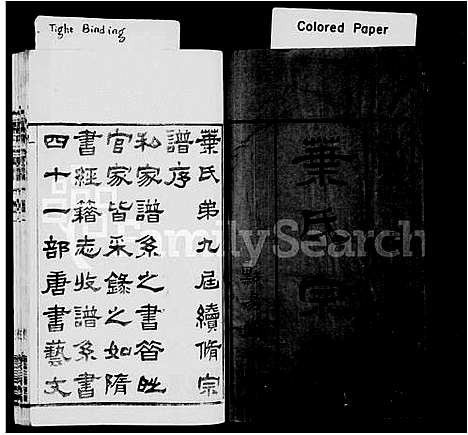 Tight Binding
Colored Paper
葉氏宗
葉氏弟九屆續脩宗
譜序
私家譜系之書昝姓
官家皆采錄之如隋
書經籍志收譜系書
四十一部唐書藝文
FamilySearch